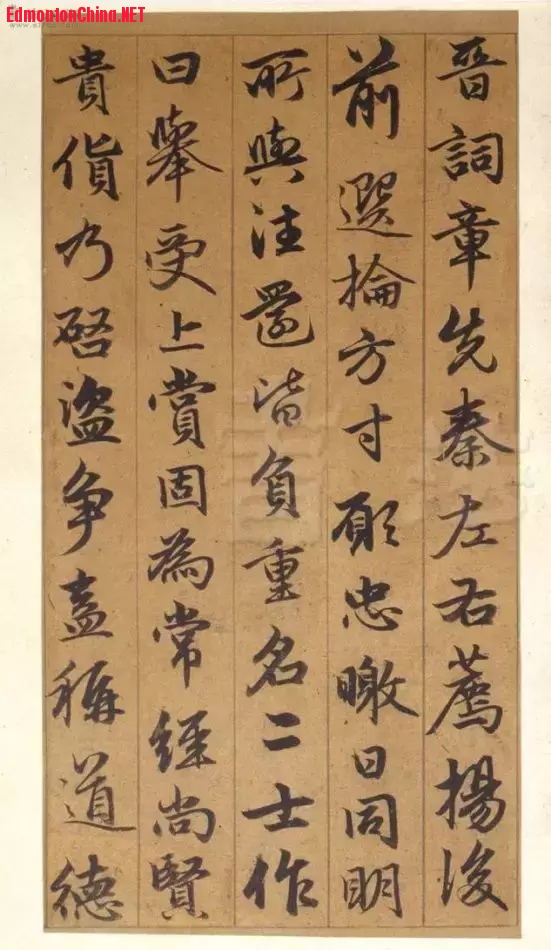 EdmontonChina.NET
晉詞章先秦左右薦揚後
前選掄方寸願忠曒日同明
所與往還皆負重名二士作
曰舉受上賞固為常經尚賢
貴貨乃啟盜爭盍稱道德